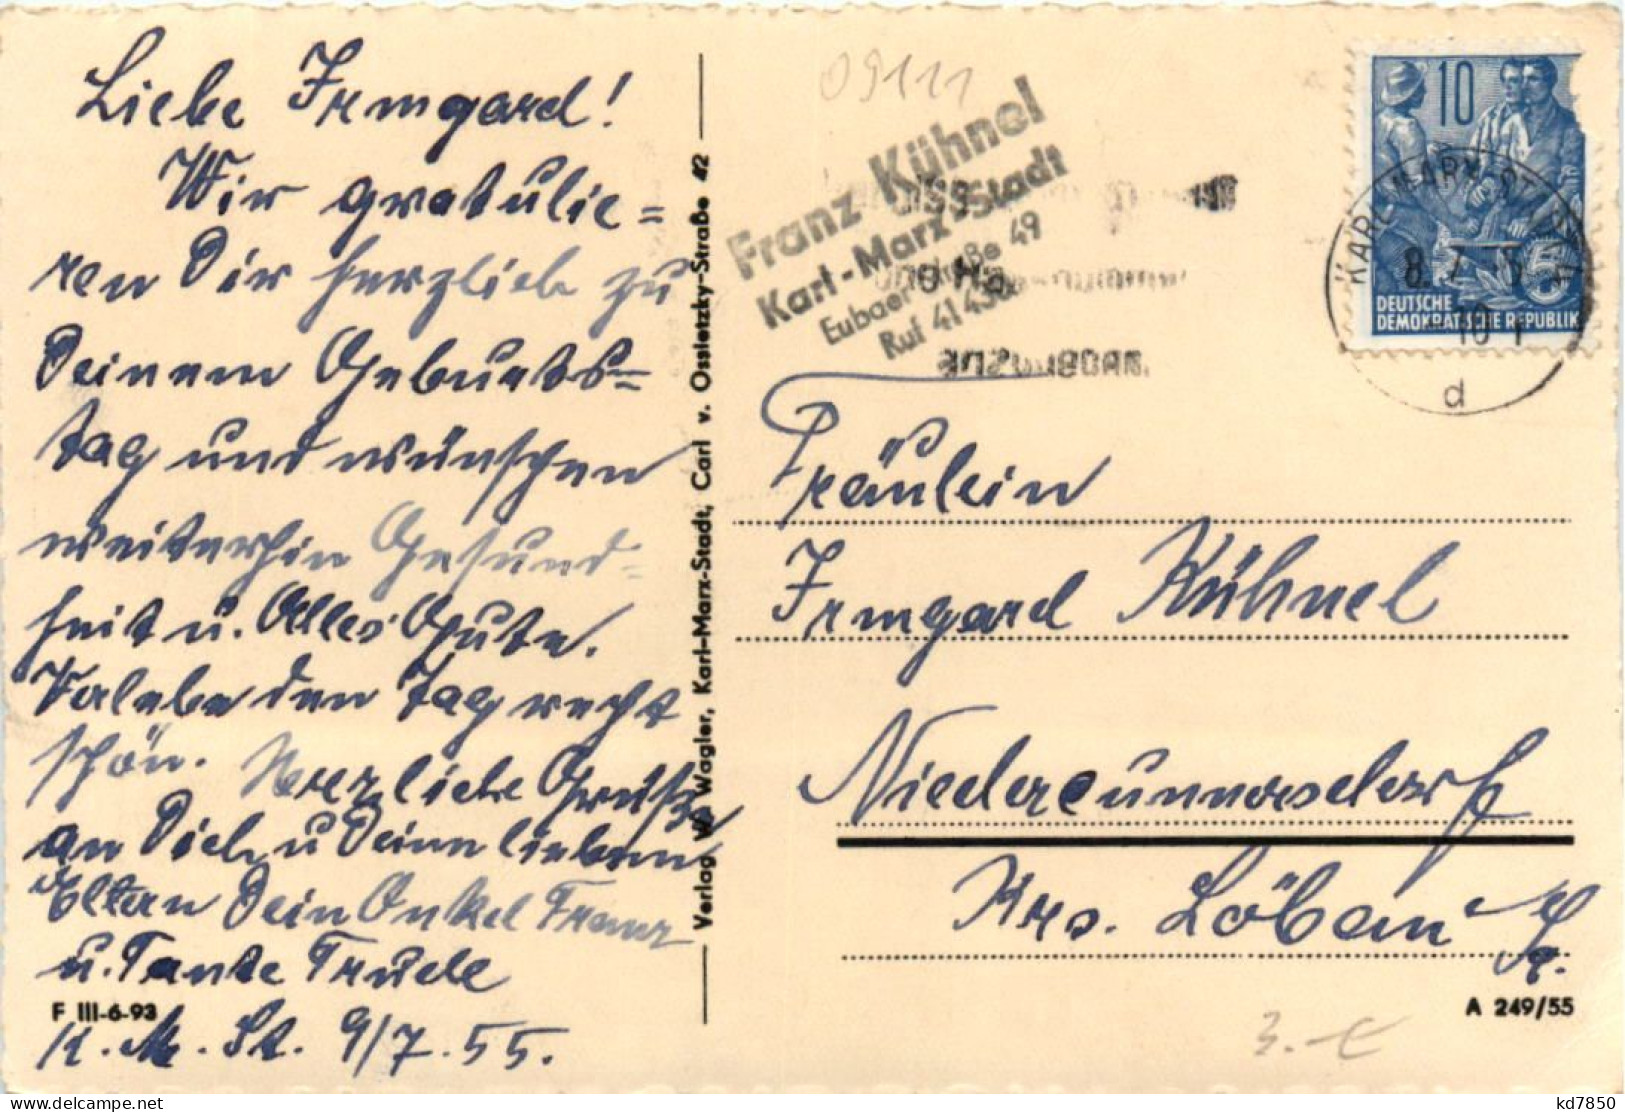 Liebe Irmgard!
Wir gratulie=
ren Dir herzlich zu
Deinem Geburts=
tag und wünschen
weiterhin Gesund=
heit u. Alles Gute.
Verlebe den Tag recht
schön. Herzliche Grüße
an Dich u Deine lieben
Eltern Dein Onkel Franz
u. Tante Trude
F III-6-93
K. M. St. 9/7. 55.
Verlag W. Wagler, Karl-Marx-Stadt, Carl v. Ossietzky-Straße 42
09111
Franz Kühnel
Karl-Marx-Stadt
Eubaer Straße 49
Ruf 41
10
DEUTSCHE
DEMOKRATISCHE REPUBLIK
KARL-MARX-STADT
8. 7. 5
d
Fräulein
Irmgard Kühnel
Niedercunnersdorf
Krs. Löbau
A 249/55
3.-€
kd7850